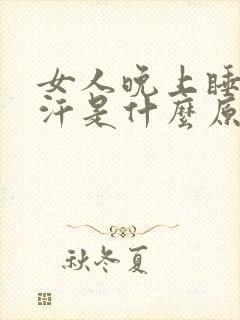 女人晚上睡
汗是什麼原
秋冬夏